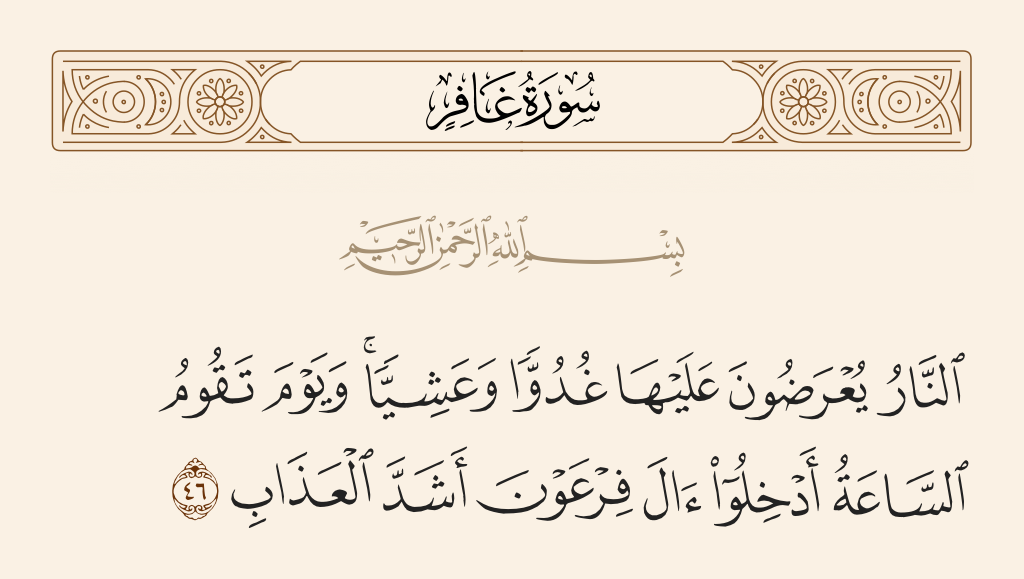 سُورَةُ غَافِرٍ
بِسْمِ ٱللَّهِ ٱلرَّحْمَٰنِ ٱلرَّحِيمِ
ٱلنَّارُ يُعْرَضُونَ عَلَيْهَا غُدُوًّا وَعَشِيًّا ۚ وَيَوْمَ تَقُومُ
ٱلسَّاعَةُ أَدْخِلُوٓا۟ ءَالَ فِرْعَوْنَ أَشَدَّ ٱلْعَذَابِ ٤٦